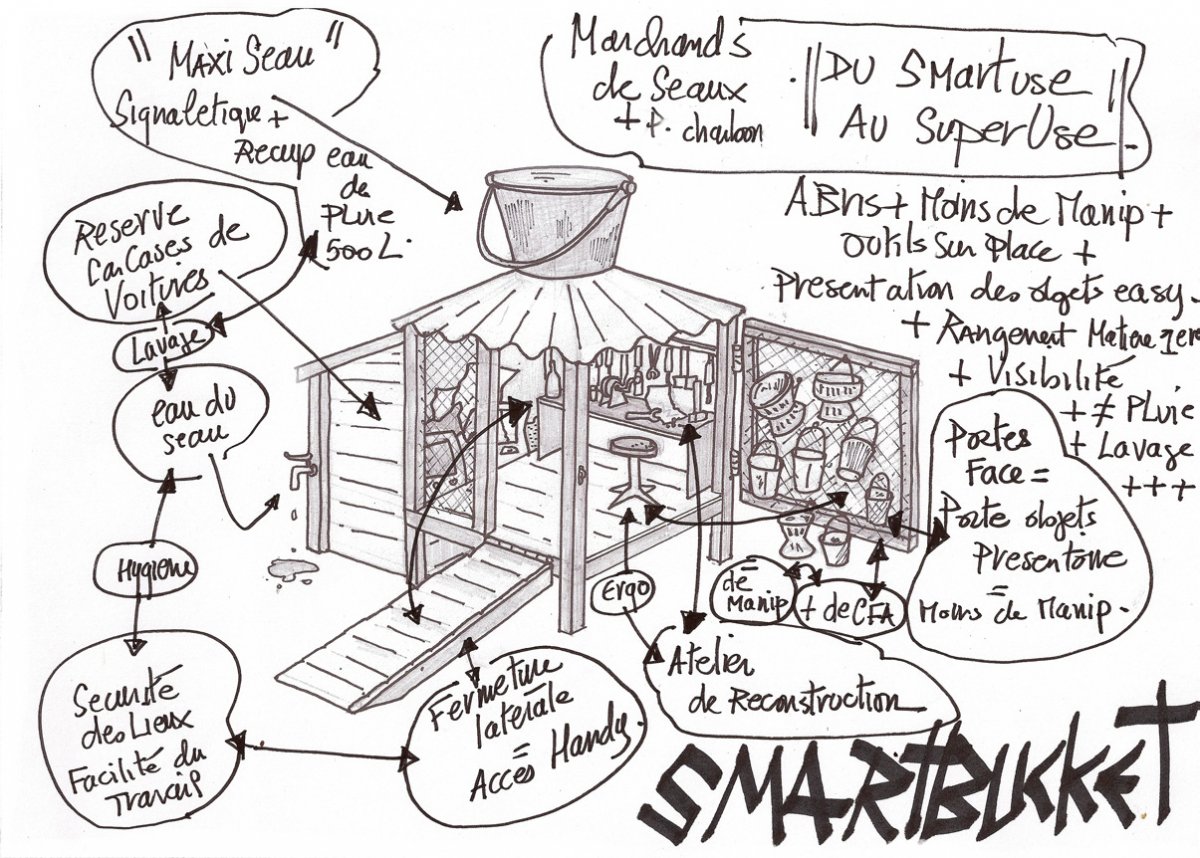 "MAXI Seau"
Signaletique +
Recup eau
de
PLuie
500L
Marchands
de Seaux
+ P. charbon
"DU SMartuse
AU SuperUse"
ABris + Moins de Manip +
outils sur place +
Presentation des objets easy.
+ Rangement Matiere 1ere
+ Visibilité
+ ≠ PLuie
+ Lavage
+++
Reserve
CarCases de
Voitures
Lavage
eau du
seau
Hygiene
Securité
des Lieux
Facilité du
Travail
Fermeture
latérale
=
Accès Handy.
Ergo
de
Manip
+ de CFA
Atelier
de Reconstruction
Portes
Face =
Porte objets
Presentoire
=
Moins de Manip.
SMARTBUCKET